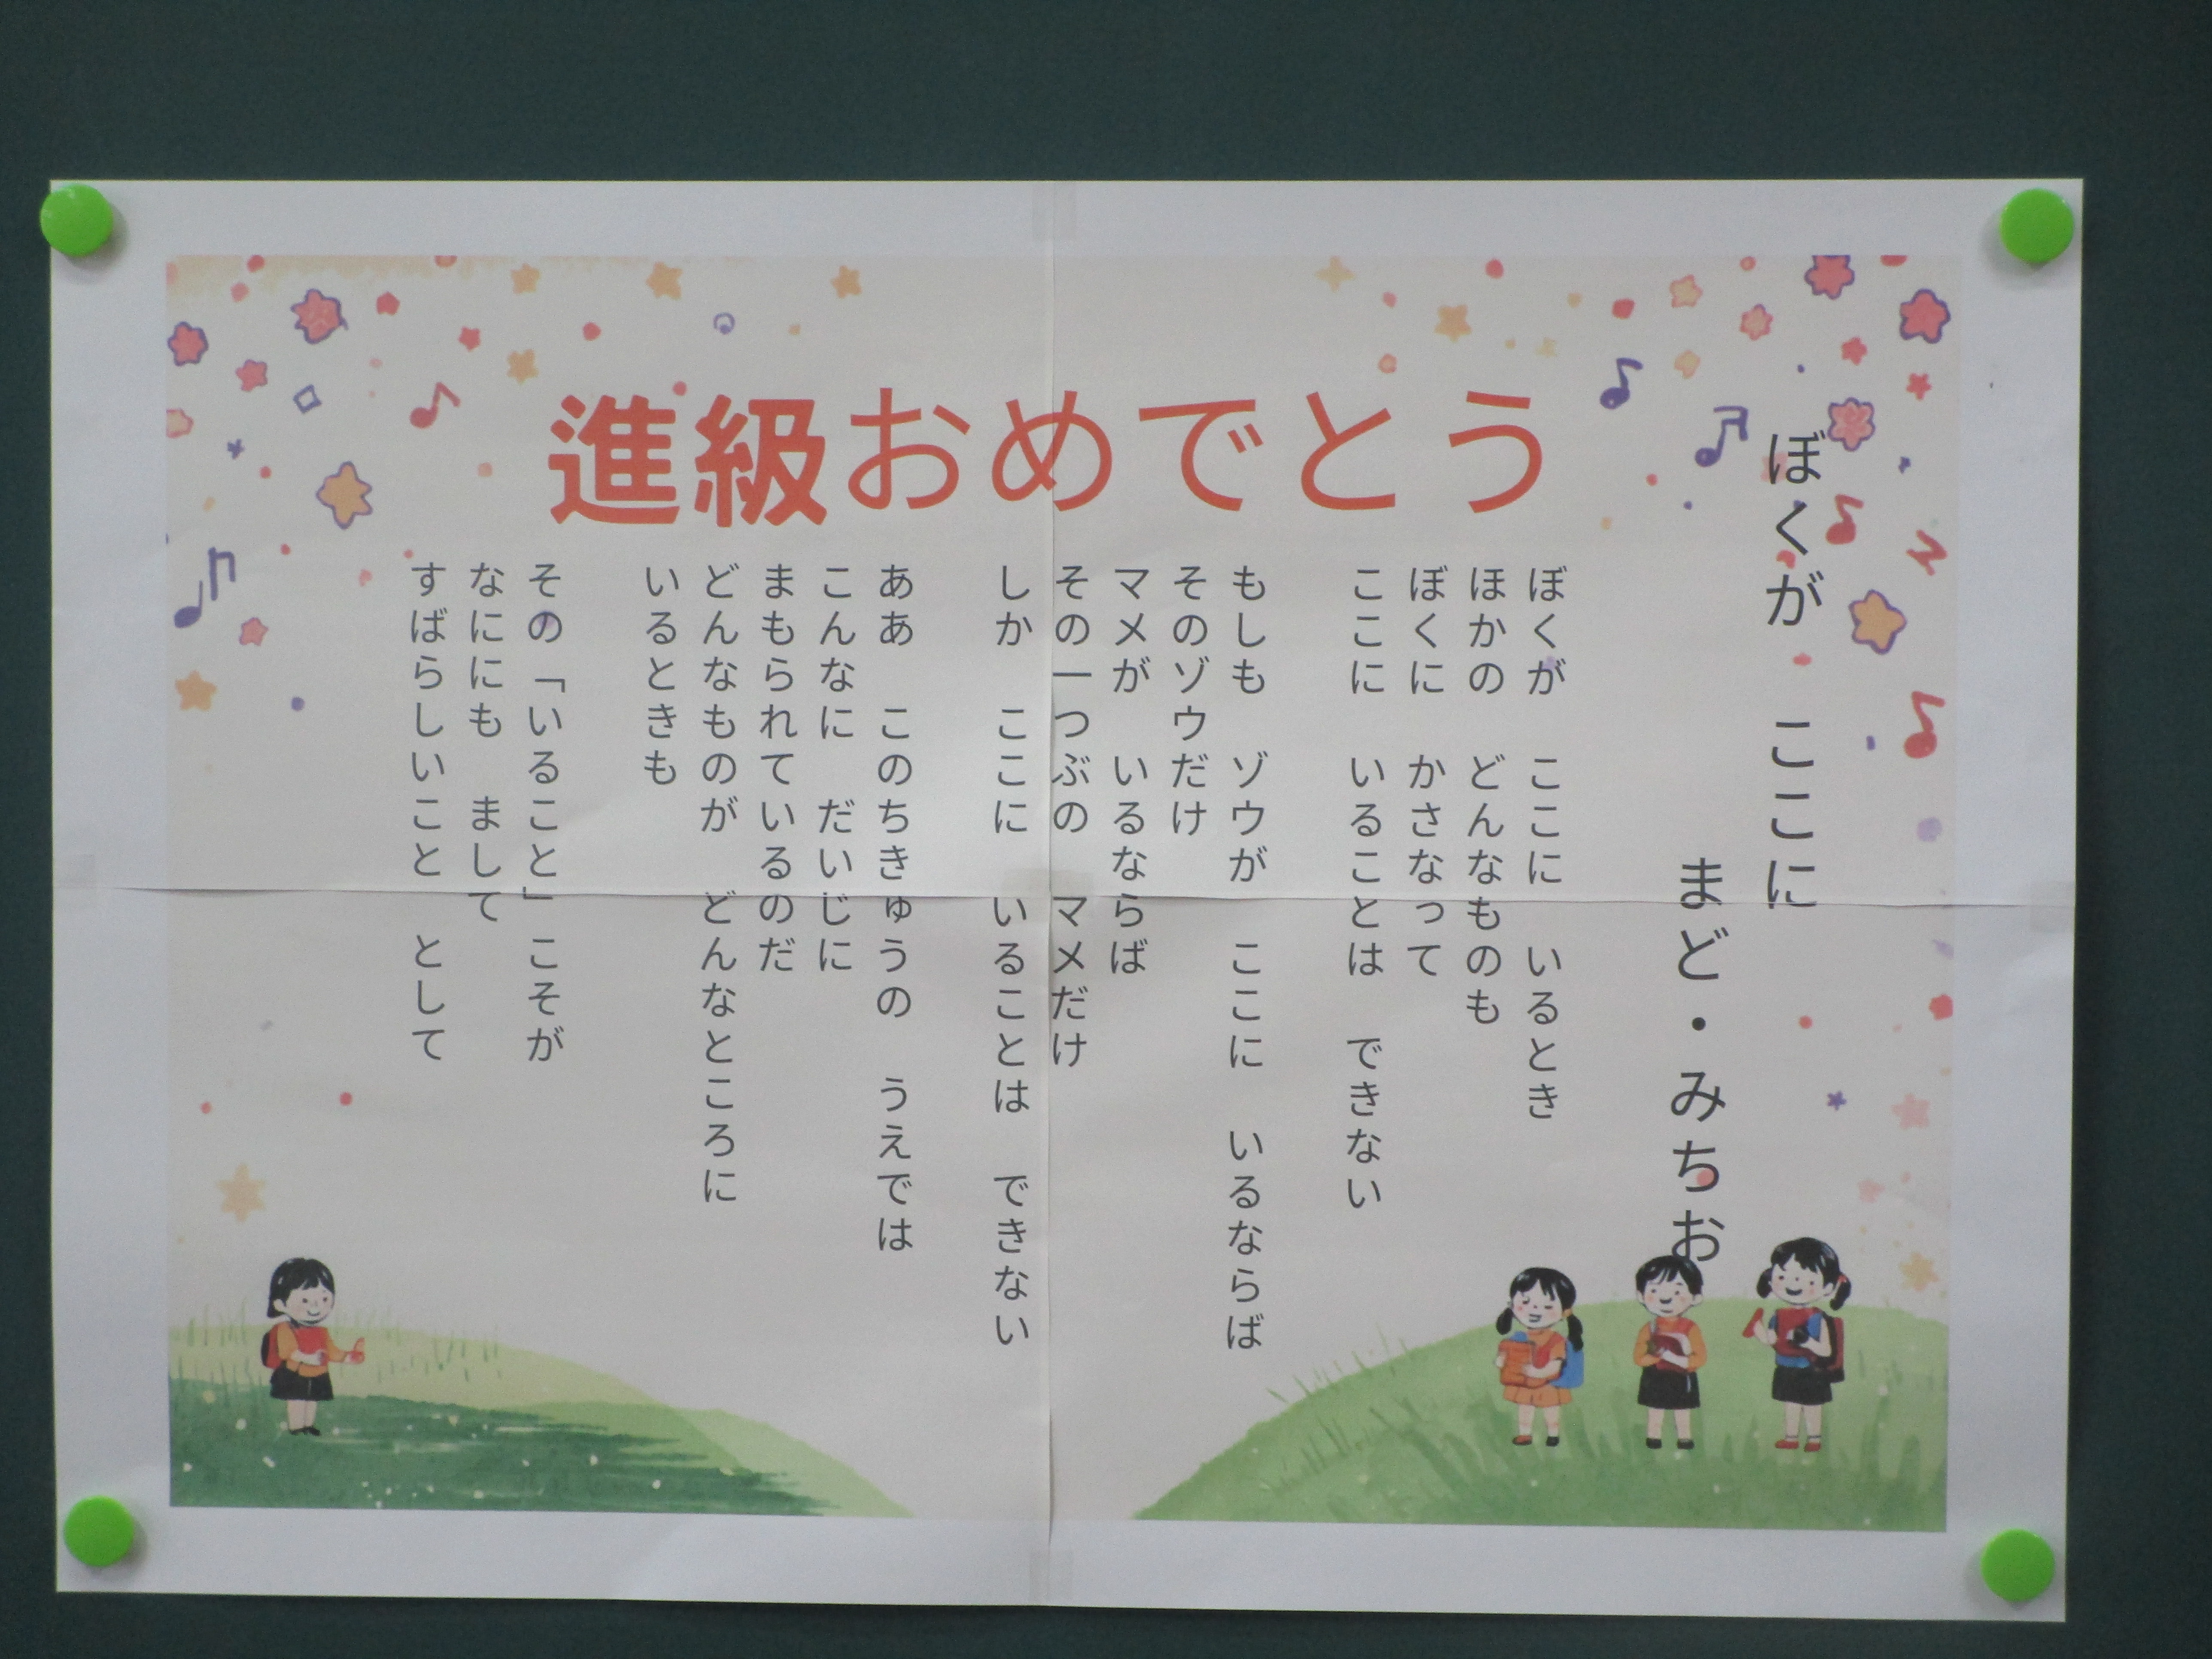 進級おめでとう
ぼくが　ここに
まど・みちお
ぼくが　ここに　いるとき
ほかの　どんなものも
ぼくに　かさなって
ここに　いることは　できない
もしも　ゾウが　ここに　いるならば
そのゾウだけ
マメが　いるならば
その一つぶの　マメだけ
しか　ここに　いることは　できない
ああ　このちきゅうの　うえでは
こんなに　だいじに
まもられているのだ
どんなものが　どんなところに
いるときも
その「いること」こそが
なににも　まして
すばらしいこと　として